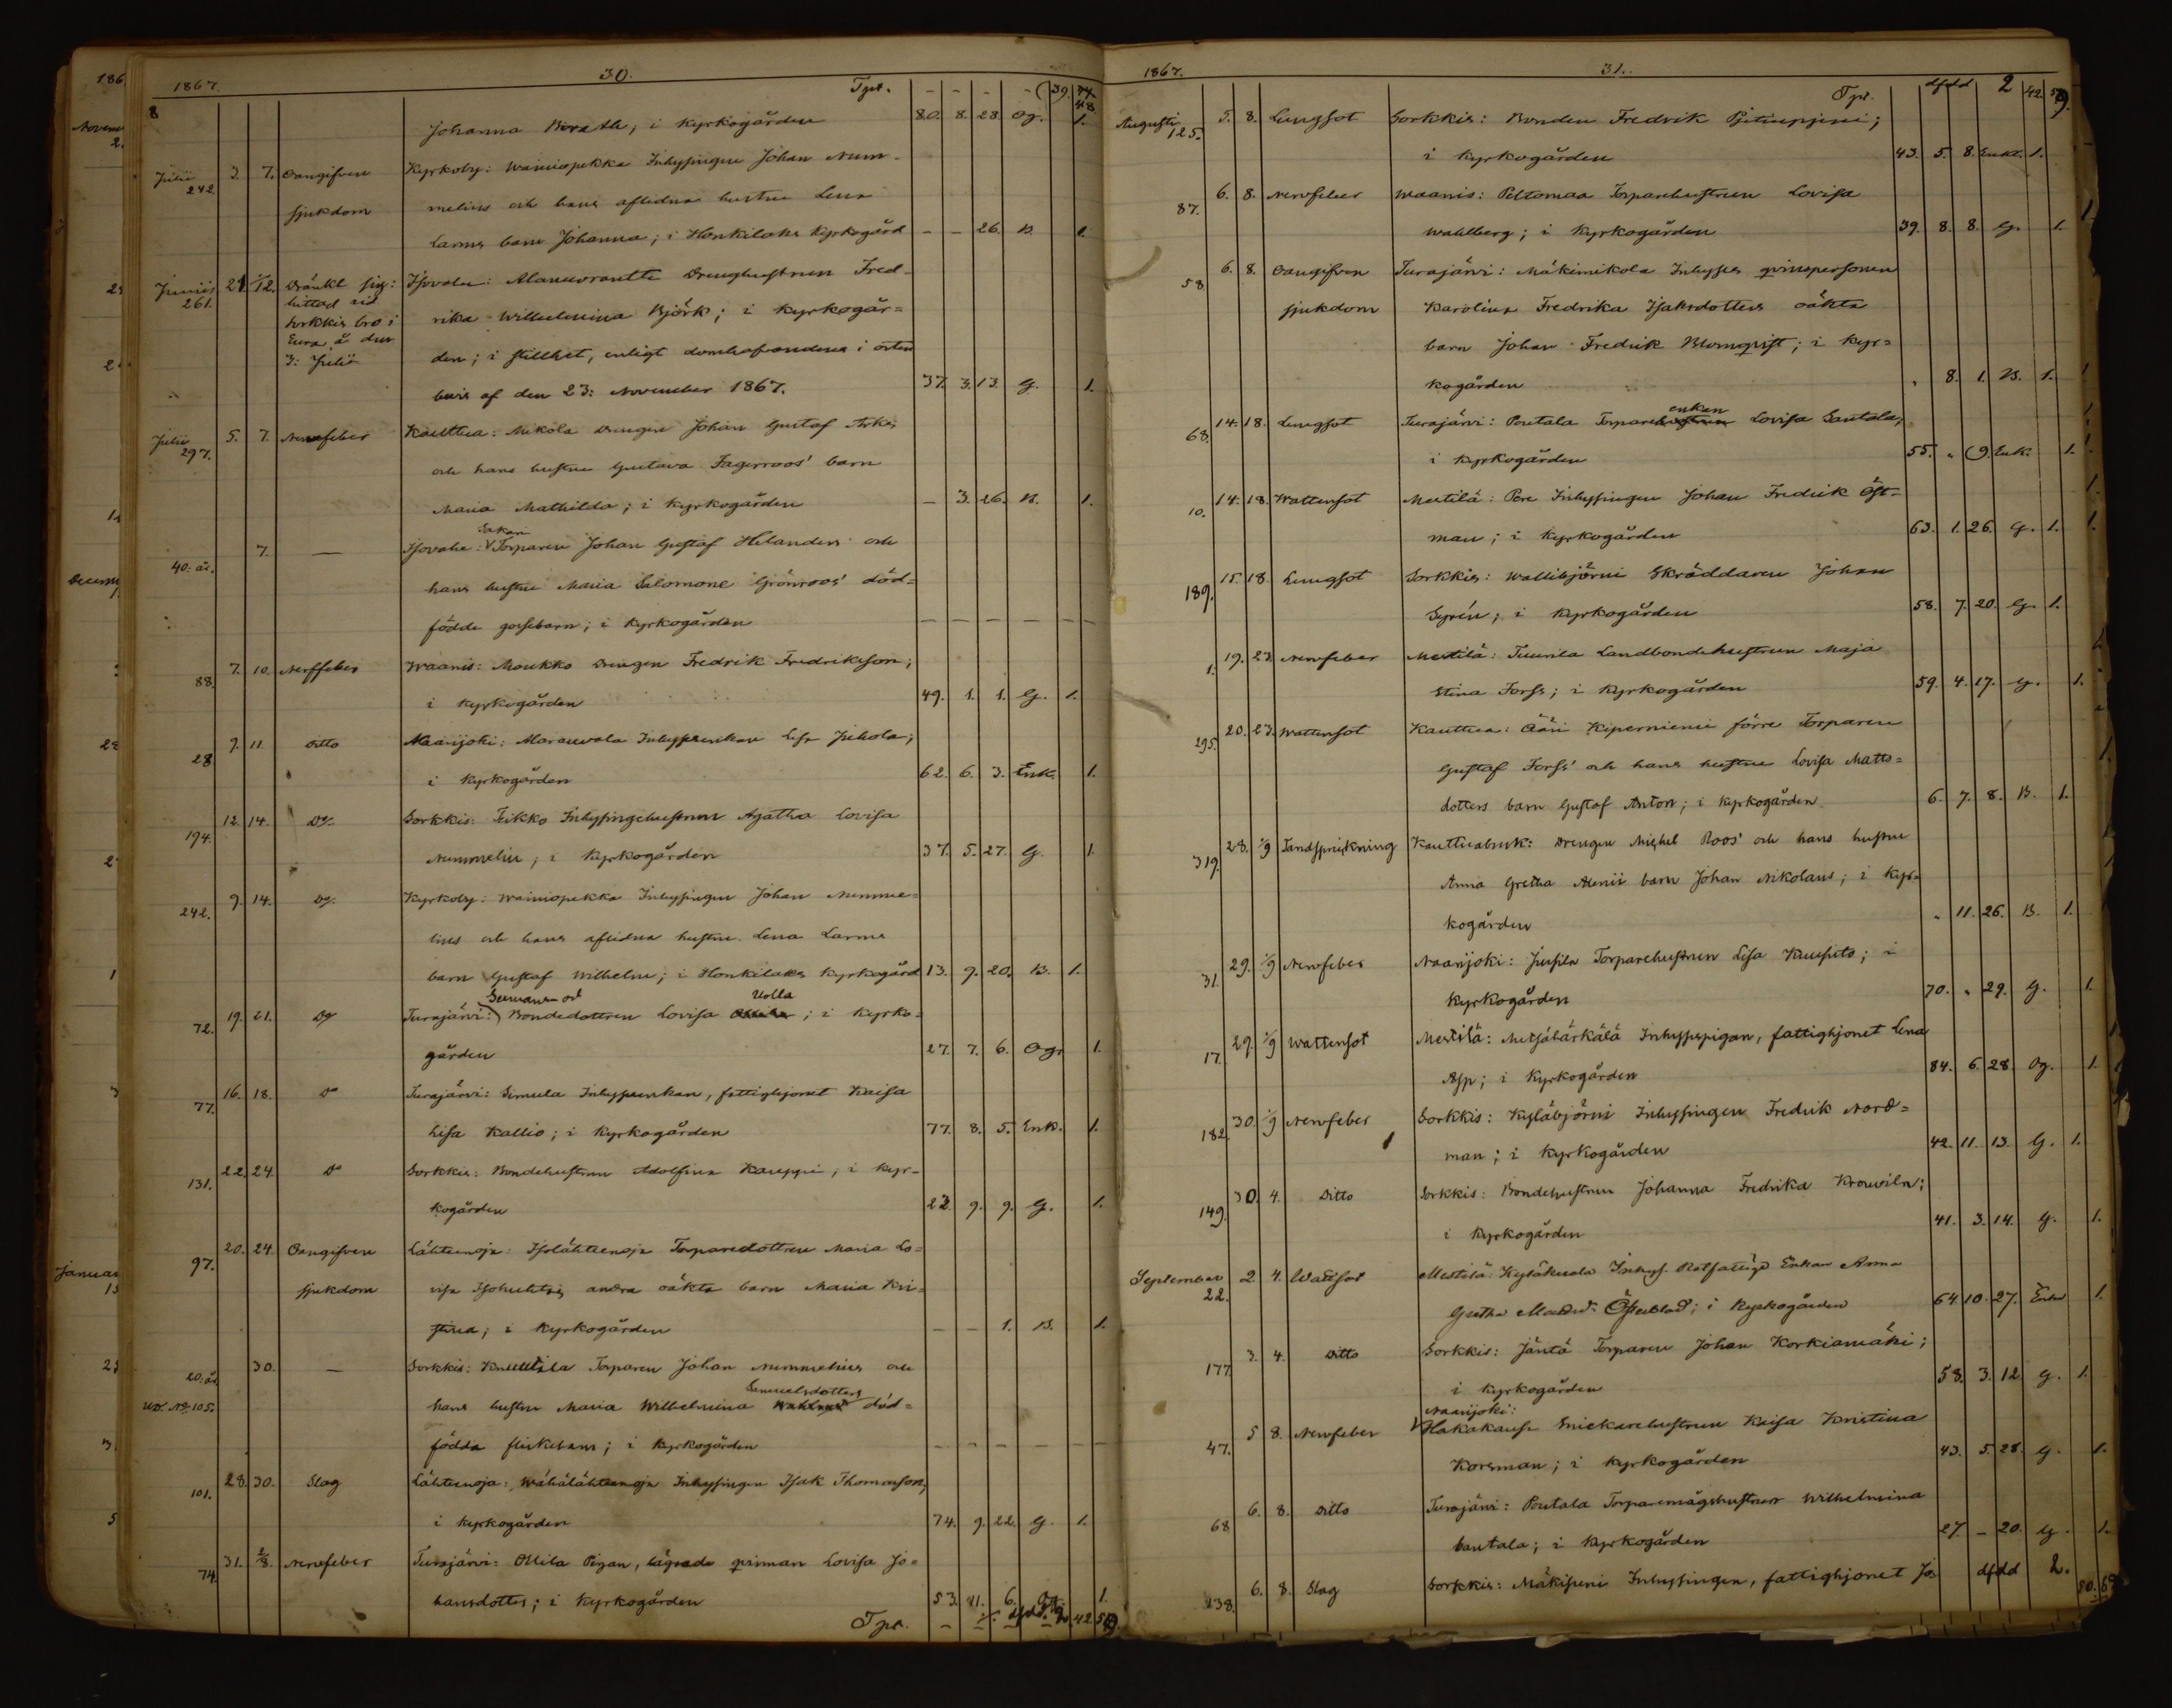 1867. 30.
Tpt. - - - - 39. 48
8 Johanna , i kyrkogården 80. 8. 28. Og. 1.
Julii 242. 3. 7. Oangifven Kyrkoby: Wainiopekka Inhysingen Johan Num-
sjukdom melius och hans aflidna hustru Lena
Larms barn Johanna; i Honkilaks kyrkogård - - 26. B. 1.
Junii 261. 21. 1/12. Dränkt sig: Isovahe: Drenghustrun Fred-
hittad vid
Sorkkis bro i rika Wilhelmina Björk; i kyrkogår=
Eura å den
3: Julii den; i stillhet, enligt domhafvandens i orten
bevis af den 23: November 1867. 37. 3. 13. G. 1.
Julii 297. 5. 7. Nervfeber Kauttua: Mikola Drengen Johan Gustaf
och hans hustru Gustava Fagerroos' barn
Maria Mathilda; i kyrkogården - 3. 26. B. 1.
40: än. 7. — Isovahe: Torparen Johan Gustaf Helanders och
hans hustru Maria Salomone Grönroos' död=
födde gossebarn; i kyrkogården - - - - - -
88. 7. 10. Nerffeber Waanis: Moukko Drengen Fredrik Fredriksson;
i kyrkogården 49. 1. 1. G. 1.
28. 9. 11. ditto Naarijoki: Inhysesenkan Lisa Juhola;
i kyrkogården 62. 6. 3. Enk. 1.
194. 12. 14. Do. Sorkkis: Feikko Inhysingehustrun Agatha Lovisa
Nummelin; i kyrkogården 37. 5. 27. G. 1.
242. 9. 14. Do. Kyrkoby: Wainiopekka Inhysingen Johan Numme=
lius och hans aflidna hustru Lena Larms
barn Gustaf Wilhelm; i Honkilaks kyrkogård 13. 9. 20. B. 1.
Uolla
72. 19. 21. Do Turajärvi: Bondedottren Lovisa ; i kyrko-
gården 27. 7. 6. Og. 1.
77. 16. 18. Do Turajärvi: Simula Inhysesenkan, fattighjonet Kaisa
Lisa Kallio; i kyrkogården 77. 8. 5. Enk. 1.
131. 22. 24. Do Sorkkis: Bondehustrun Adolfina Kauppi; i kyr-
kogården 23. 9. 9. G. 1.
97. 20. 24. Oangifven Lähteenoja: Isolähteenoja Torparedottren Maria Lo=
sjukdom visa andra oäkta barn Maria Kri=
stina; i kyrkogården - - 1. B. 1.
20: än. 30. — Sorkkis: Knuutila Torparen Johan Nummelius och
Samuelsdotters
Utd. No 105. hans hustru Maria Wilhelmina död=
födda flickebarn; i kyrkogården - - - - - -
101. 28. 30. Slag Lähteenoja: Wähälähteenoja Inhysingen Isak Thomasson;
i kyrkogården 74. 9. 22. G. 1.
74. 31. 2/8. Nervfeber Turajärvi: Ollila Pigan, lägrade qvinnan Lovisa Jo=
hansdotter; i kyrkogården 53. 11. 6. Og. 1.
Tpt. - - dfdd. 2. 42. 59.
1867. 31.
Tpt. dfdd 2 42. 59.
Augusti 125. 5. 8. Lungsot Sorkkis: Bonden Fredrik ;
i kyrkogården 43. 5. 8. Enkl. 1.
87. 6. 8. Nervfeber Waanis: Peltomaa Torparehustrun Lovisa
Wahlberg; i kyrkogården 39. 8. 8. G. 1.
58. 6. 8. Oangifven Turajärvi: Mäkimikola Inhyses qvinspersonen
sjukdom Karolina Fredrika Isaksdotters oäkta
barn Johan Fredrik Blomqvist; i kyr=
kogården " 8. 1. B. 1.
enkan
68. 14. 18. Lungsot Turajärvi: Poutala Torparehustrun Lovisa Santala,
i kyrkogården 55. " 9. Enk. 1.
10. 14. 18. Wattensot Mestilä: Pere Inhysingen Johan Fredrik Öst-
man; i kyrkogården 63. 1. 26. G. 1.
189. 15. 18. Lungsot Sorkkis: Wallibjörni Skräddaren Johan
Syrén; i kyrkogården 58. 7. 20. G. 1.
1. 19. 23. Nervfeber Mestilä: Tuurila Landbondehustrun Maja
Stina Forss; i kyrkogården 59. 4. 17. G. 1.
295. 20. 23. Wattensot Kauttua: Ääri Kiperniemi förre Torparen
Gustaf Forss' och hans hustru Lovisa Matts=
dotters barn Gustaf Anton; i kyrkogården 6. 7. 8. B. 1.
319. 28. 1/9 Tandsprickning Kauttuabruk: Drengen Michel Roos' och hans hustru
Anna Gretha barn Johan Nikolaus; i kyr=
kogården " 11. 26. B. 1.
31. 29. 1/9 Nervfeber Naarijoki: Jussila Torparehustrun Lisa Kuusisto; i
kyrkogården 70. " 29. G. 1.
17. 29. 1/9 Wattensot Mestilä: Metsähärkälä Inhysespigan, fattighjonet Lena
Asp; i kyrkogården 84. 6. 28. Og. 1.
182. 30. 1/9 Nervfeber Sorkkis: Kyläbjörni Inhysingen Fredrik Nord=
man; i kyrkogården 42. 11. 13. G. 1.
149. 30. 4. Ditto Sorkkis: Bondehustrun Johanna Fredrika Krouvila;
i kyrkogården 41. 3. 14. G. 1.
September 22. 2. 4. Wattsot Mestilä: Inhys. Enkan Anna
Gretha Österblad; i kyrkogården 64. 10. 27. Enk. 1.
177. 3. 4. Ditto Sorkkis: Jäntä Torparen Johan Korkiamäki;
i kyrkogården 58. 3. 12. G. 1.
Naarijoki:
47. 5. 8. Nervfeber Hakakausa Snickarehustrun Kaisa Kristina
Korsman; i kyrkogården 43. 5. 28. G. 1.
68. 6. 8. Ditto Turajärvi: Poutala Torparemågshustrun Wilhelmina
Santala; i kyrkogården 27. - 20. G. 1.
238. 6. 8. Slag Sorkkis: Mäkiseni Inhysingen, fattighjonet Jo- dfdd 2.
50. 69